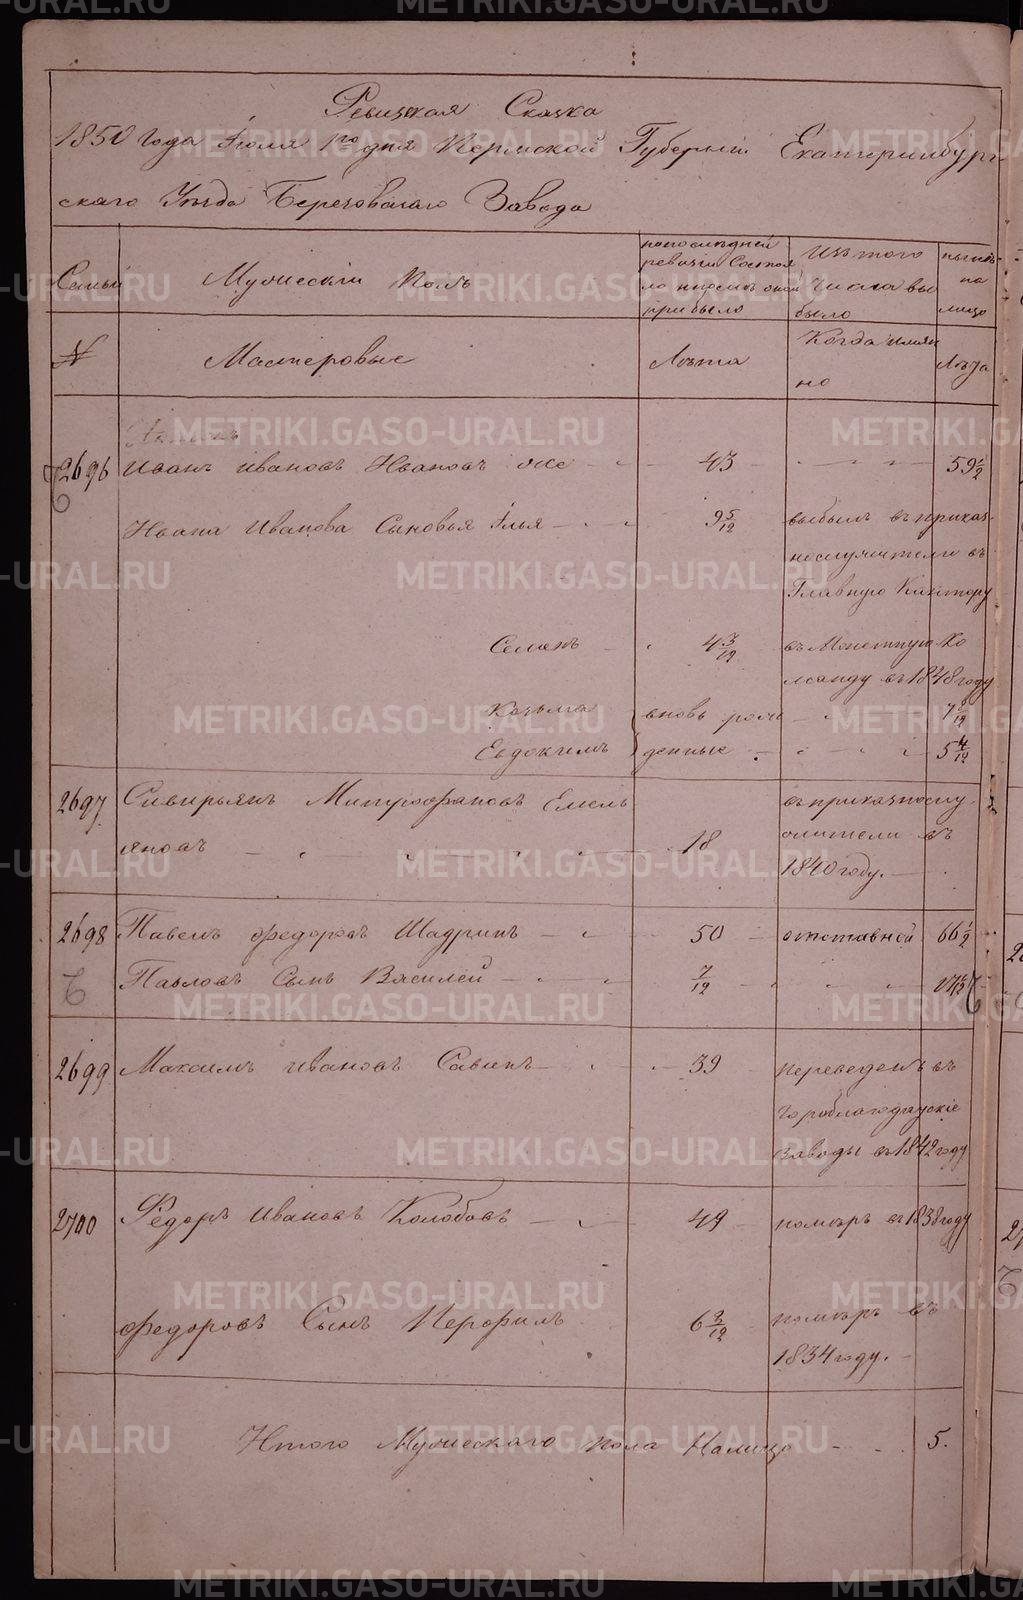 Ревизская Сказка
1850 года Іюля 1го дня Пермской Губерніи Екатеринбург
скаго Уѣзда Березовскаго Завода
Семьи
Мужескій Полъ
по последней ревизіи Состоя ло и после оной прибыло
Изъ того Числа вы было
ныне на лицо
№
Мастеровые
Лѣта
Когда имян но
Лѣта
2696 Иванъ Ивановъ Ивановъ же 43 59 1/2
Ивана Иванова Сыновья Илья 9 5/12 выбылъ въ приказ
нослужители въ
Главную Контору
Семенъ 4 3/12 въ Монетную Ко
манду въ 1848 году
Козьма вновь рож 7 8/12
Евдокимъ денные 5 4/12
2697 Сивирьянъ Митрофановъ Емель въ приказнослу
яновъ 18 жители въ
1840 году.
2698 Павелъ Федоровъ Шадринъ 50 отставной 66 1/2
Павловъ Сынъ Василей 7/12
2699 Максимъ Ивановъ Савинъ 39 переведенъ въ
Гороблагодатскіе
Заводы въ 1842 году
2700 Федоръ Ивановъ Колобовъ 49 помѣръ въ 1838 году
Федоровъ Сынъ Перфилъ 6 2/12 помѣръ въ
1834 году.
Итого Мужескаго пола Налицо 5.
METRIKI.GASO-URAL.RU